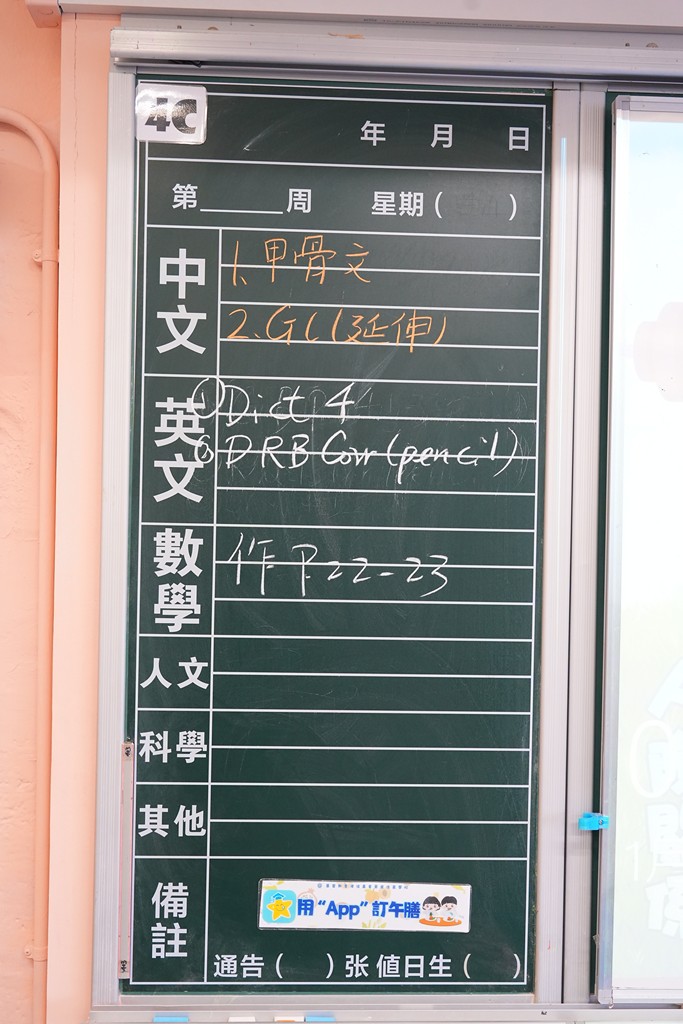 4C
年 月 日
第______周 星期( )
中文
1. 甲骨文
2. G(延伸)
英文
① Dict 4
② DRB Corr (pencil)
數學
作 P.22-23
人文
科學
其他
備註
用“App”訂午膳
通告( )张 值日生( )